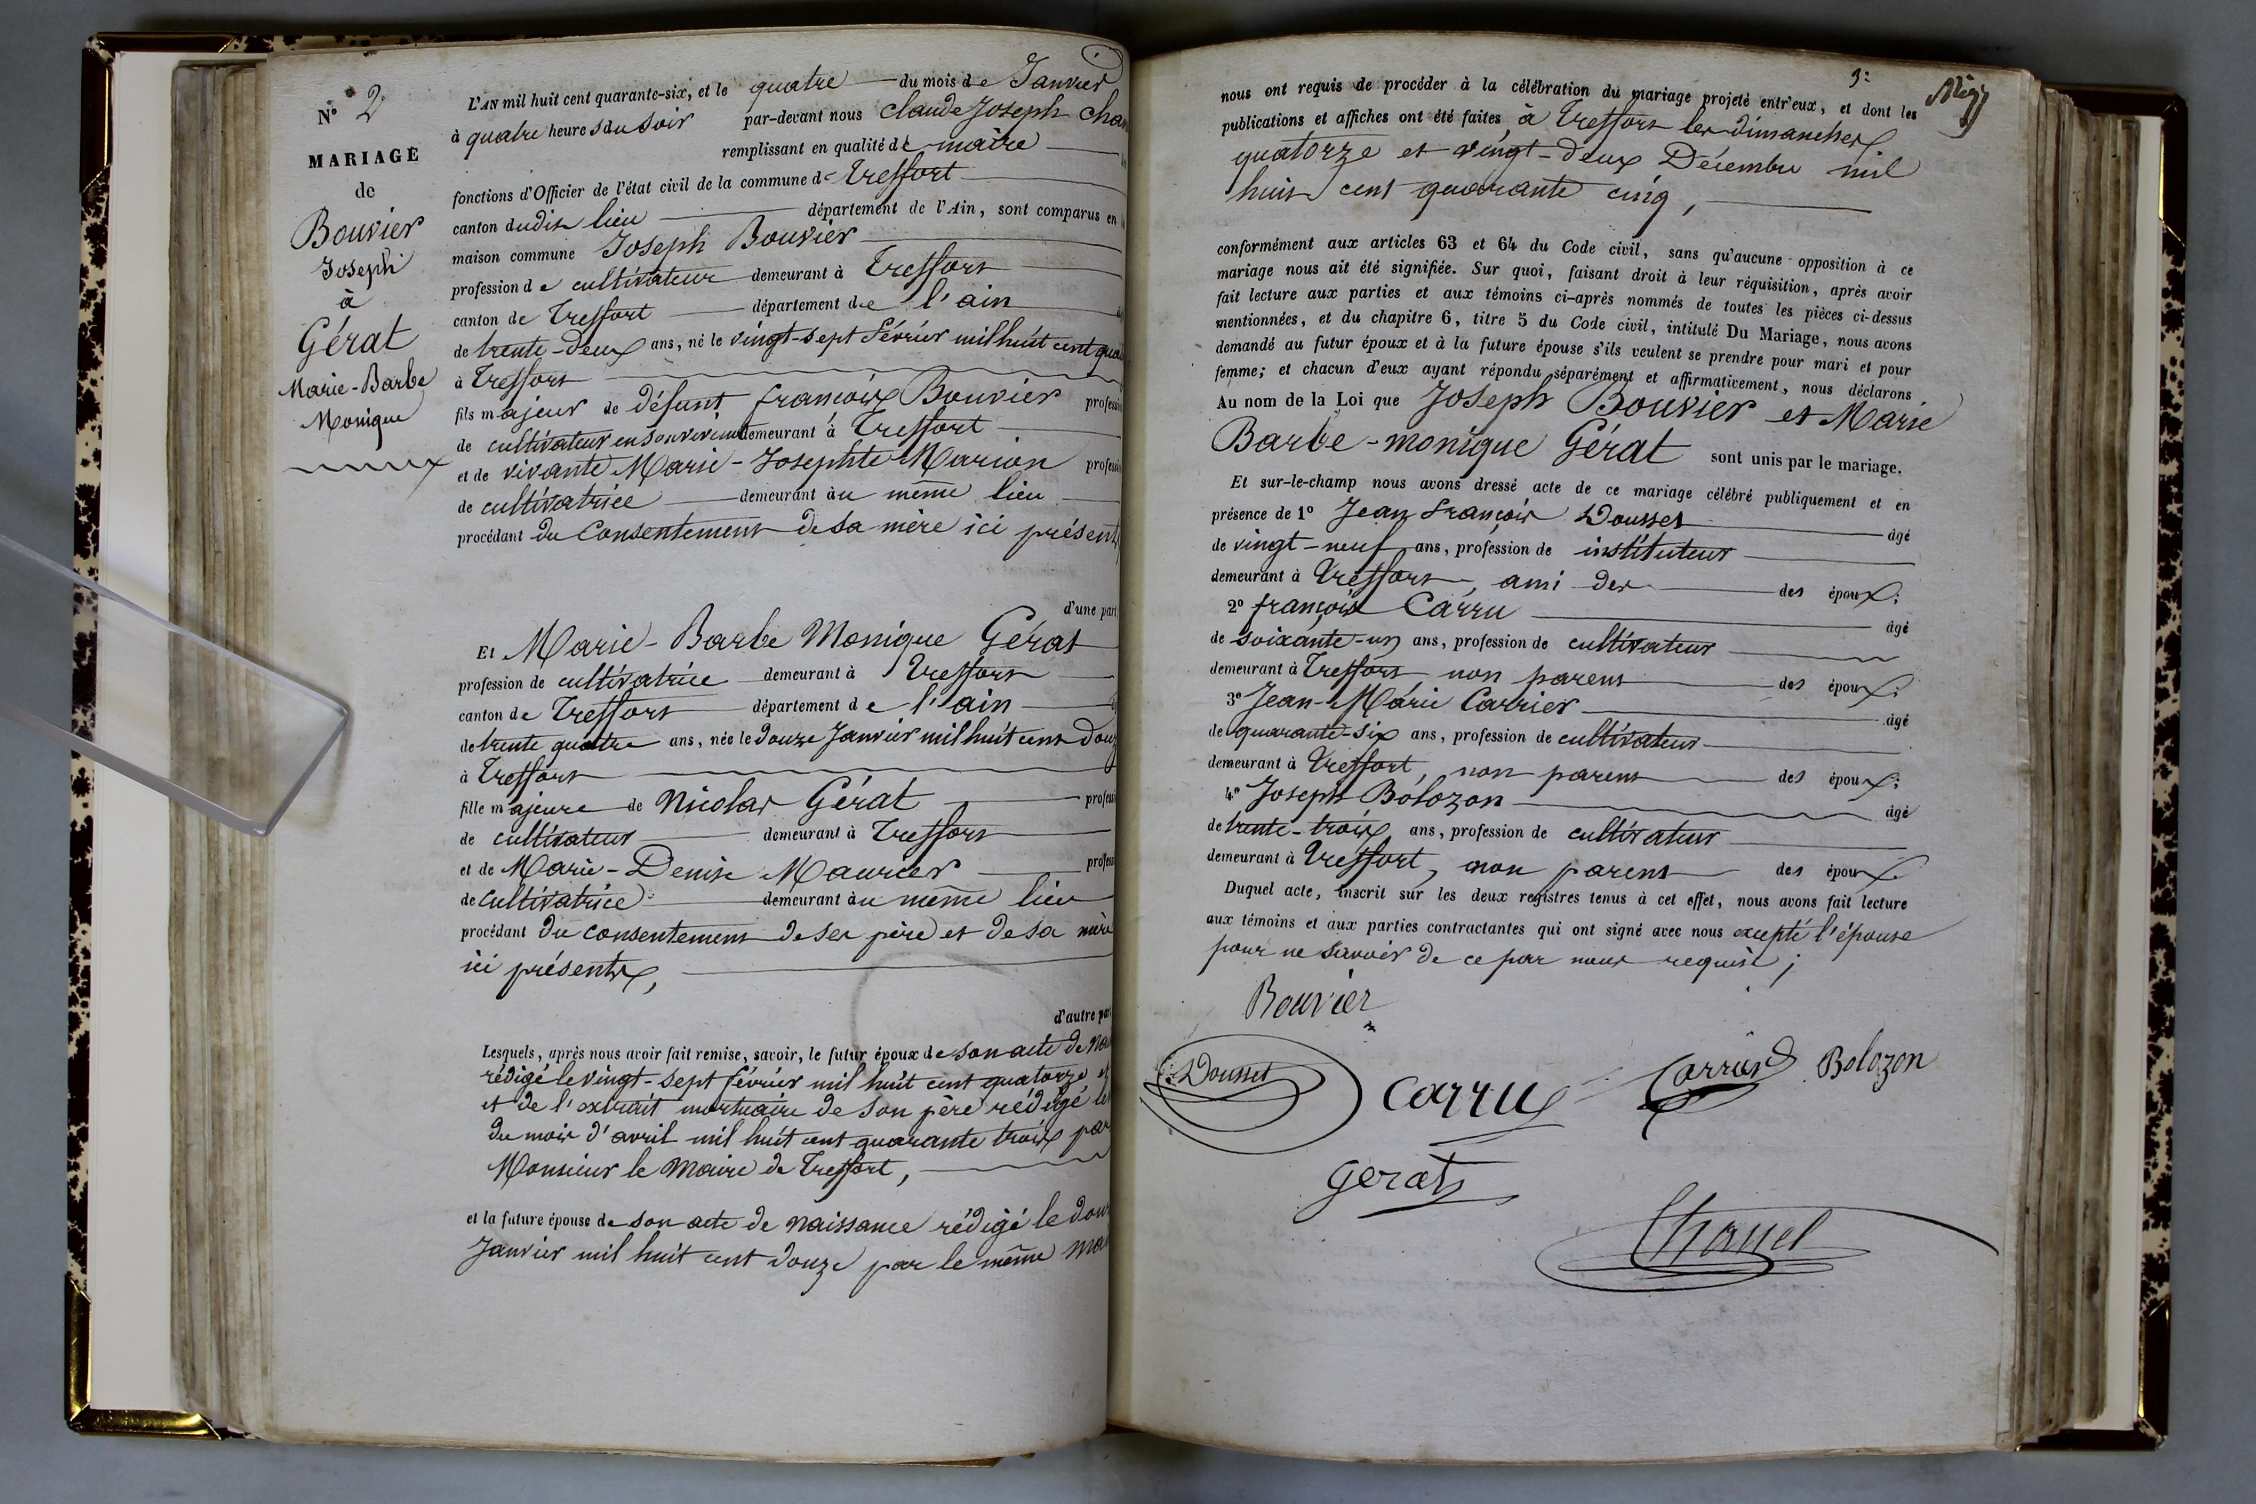 N° 2
MARIAGE
de
Bouvier
Joseph
à
Gérat
Marie-Barbe
Monique
L'AN mil huit cent quarante-six, et le quatre du mois de Janvier
à quatre heures du soir par-devant nous Claude Joseph Chan
remplissant en qualité de maire
fonctions d'Officier de l'état civil de la commune de Treffort
canton dudit lieu département de l'Ain, sont comparus en
maison commune Joseph Bouvier
profession de cultivateur demeurant à Treffort
canton de Treffort département de l'ain
de trente-deux ans, né le vingt-sept février mil huit cent qua
à Treffort
fils majeur de défunt françois Bouvier professi
de cultivateur en son vivant demeurant à Treffort
et de vivante Marie-Josephte Marion professi
de cultivatrice demeurant au même lieu
procédant du consentement de sa mère ici présente
d'une part
Et Marie-Barbe Monique Gérat
profession de cultivatrice demeurant à Treffort
canton de Treffort département de l'ain
de trente quatre ans, née le douze Janvier mil huit cent douz
à Treffort
fille majeure de Nicolas Gérat profess
de cultivateur demeurant à Treffort
et de Marie-Denise Maurier profess
de cultivatrice demeurant au même lieu
procédant du consentement de ses père et de sa mère
ici présents,
d'autre par
Lesquels, après nous avoir fait remise, savoir, le futur époux de son acte de na
rédigé le vingt-sept février mil huit cent quatorze et
et de l'extrait mortuaire de son père rédigé le
du mois d'avril mil huit cent quarante trois par
Monsieur le Maire de Treffort,
et la future épouse de son acte de naissance rédigé le douz
Janvier mil huit cent douze par le même mai
3:
nous ont requis de procéder à la célébration du mariage projeté entr'eux, et dont les
publications et affiches ont été faites à Treffort les dimanches
quatorze et vingt-deux Décembre mil
huit cent quarante cinq,
conformément aux articles 63 et 64 du Code civil, sans qu'aucune opposition à ce
mariage nous ait été signifiée. Sur quoi, faisant droit à leur réquisition, après avoir
fait lecture aux parties et aux témoins ci-après nommés de toutes les pièces ci-dessus
mentionnées, et du chapitre 6, titre 5 du Code civil, intitulé Du Mariage, nous avons
demandé au futur époux et à la future épouse s'ils veulent se prendre pour mari et pour
femme; et chacun d'eux ayant répondu séparément et affirmativement, nous déclarons
Au nom de la Loi que Joseph Bouvier et Marie
Barbe-monique Gérat sont unis par le mariage.
Et sur-le-champ nous avons dressé acte de ce mariage célébré publiquement et en
présence de 1° Jean François Dousset âgé
de vingt-neuf ans, profession de instituteur
demeurant à Treffort, ami des des époux;
2° françois Carru âgé
de soixante-un ans, profession de cultivateur
demeurant à Treffort, non parent des époux;
3° Jean-Marie Carrier âgé
de quarante-six ans, profession de cultivateur
demeurant à Treffort, non parent des époux;
4° Joseph Bolozon âgé
de trente-trois ans, profession de cultivateur
demeurant à Treffort, non parent des époux.
Duquel acte, inscrit sur les deux registres tenus à cet effet, nous avons fait lecture
aux témoins et aux parties contractantes qui ont signé avec nous excepté l'épouse
pour ne savoir de ce par nous requise;
Bouvier
Dousset Carru Carrier Bolozon
gerat
Chanel